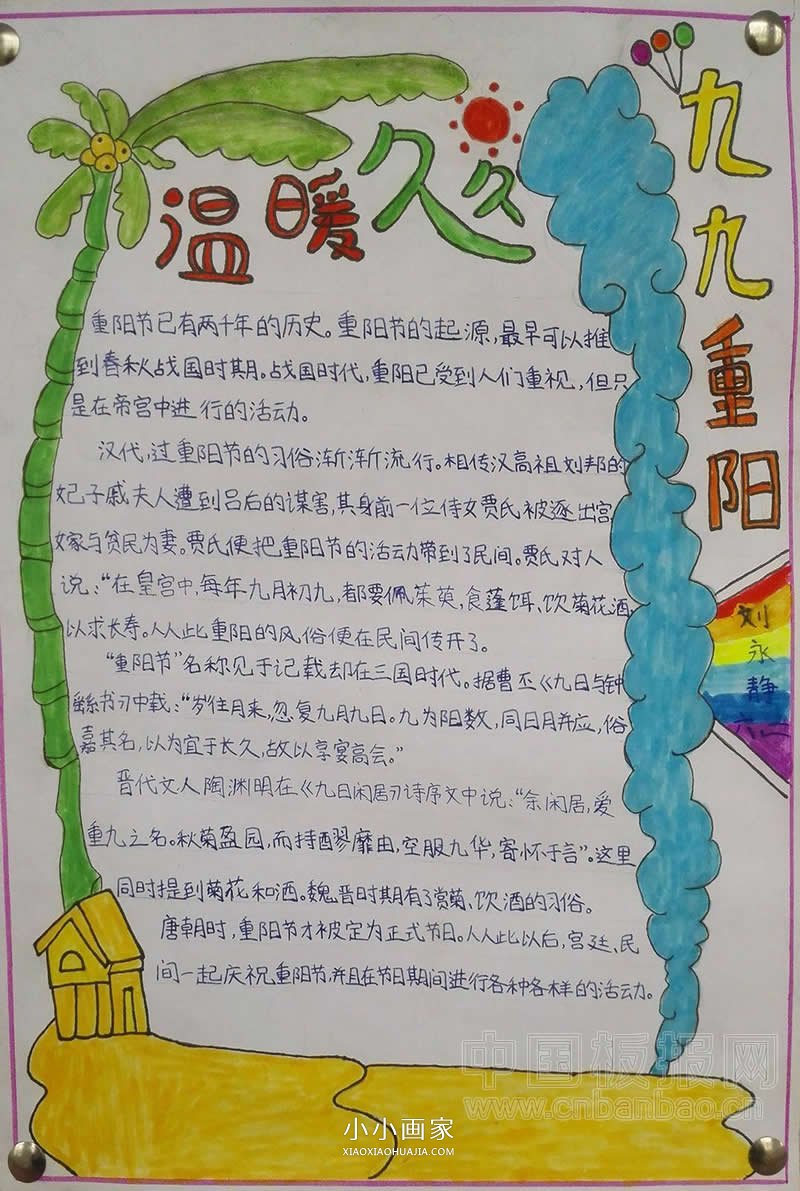 温暖久久
九九重阳
重阳节已有两千年的历史。重阳节的起源,最早可以推
到春秋战国时期。战国时代,重阳已受到人们重视,但只
是在帝宫中进行的活动。
汉代,过重阳节的习俗渐渐流行。相传汉高祖刘邦的
妃子戚夫人遭到吕后的谋害,其身前一位侍女贾氏被逐出宫,
嫁与贫民为妻。贾氏便把重阳节的活动带到了民间。贾氏对人
说:“在皇宫中,每年九月初九,都要佩茱萸,食蓬饵、饮菊花酒,
以求长寿。人人此重阳的风俗便在民间传开了。
“重阳节”名称见于记载却在三国时代。据曹丕《九日与钟
繇书》中载:“岁往月来,忽复九月九日。九为阳数,同日月并应,俗
嘉其名,以为宜于长久,故以享宴高会。”
晋代文人陶渊明在《九日闲居》诗序文中说:“余闲居,爱
重九之名。秋菊盈园,而持醪靡由,空服九华,寄怀于言”。这里
同时提到菊花和酒。魏晋时期有了赏菊、饮酒的习俗。
唐朝时,重阳节才被定为正式节日。人人此以后,宫廷、民
间一起庆祝重阳节,并且在节日期间进行各种各样的活动。
刘永静
中国板报网
www.cnbanbao.cn
小小画家
XIAOXIAOHUAJIA.COM